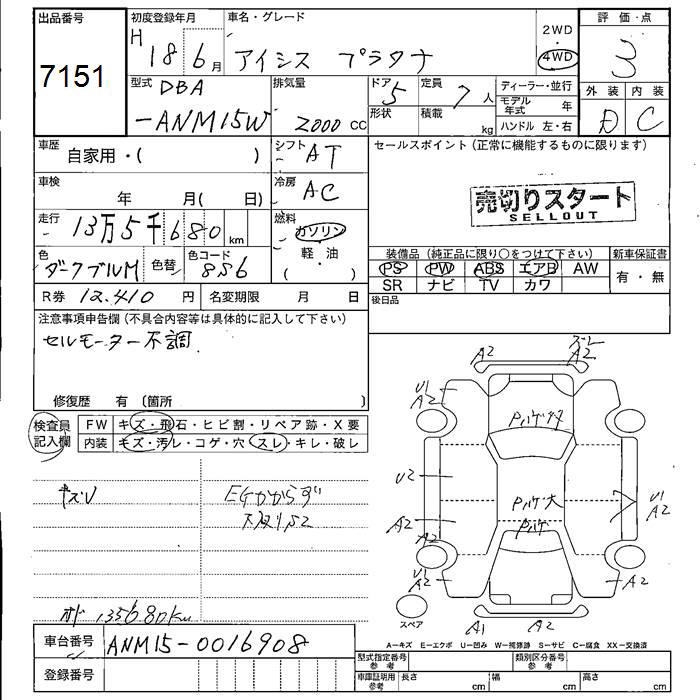 出品番号 初度登録年月 車名・グレード 評価・点
7151 H 18 6月 アイシス プラタナ 2WD 4WD 3
型式 DBA 排気量 ドア 5 定員 7人 ディーラー・並行 外装 内装
-ANM15W 2000 CC 形状 積載 kg モデル年式 年 D C
ハンドル 左・右
車歴 自家用・( ) シフト AT セールスポイント (正常に機能するものに限ります)
車検 年 月( 日) 冷房 AC 売切りスタート
SELLOUT
走行 13万5千680km 燃料 ガソリン ・ 軽・油
色 ダークブルM 色替 色コード 8S6 装備品 (純正品に限り○をつけて下さい) 新車保証書
PS PW ABS エアB AW 有・無
SR ナビ TV カワ
R券 12,410 円 名変期限 月 日 後日品
注意事項申告欄 (不具合内容等は具体的に記入して下さい)
セルモーター不調
修復歴 有 (箇所 )
検査員記入欄 FW キズ・飛石・ヒビ割・リペア跡・X要
内装 キズ・汚レ・コゲ・穴 スレ・キレ・破レ
キズレ EGかからず
オド 135680km
車台番号 ANM15-0016908
登録番号
A2 ズレ A2
U1 A2
U2
A2 A2
U1 A2
U1 A2
A2
A1 A2
スペア
A-キズ E-エクボ U-凹み W-補修跡 S-サビ C-腐食 XX-交換済
型式指定番号 参考 類別区分番号 参考
車庫証明用 参考 長さ cm 幅 cm 高さ cm